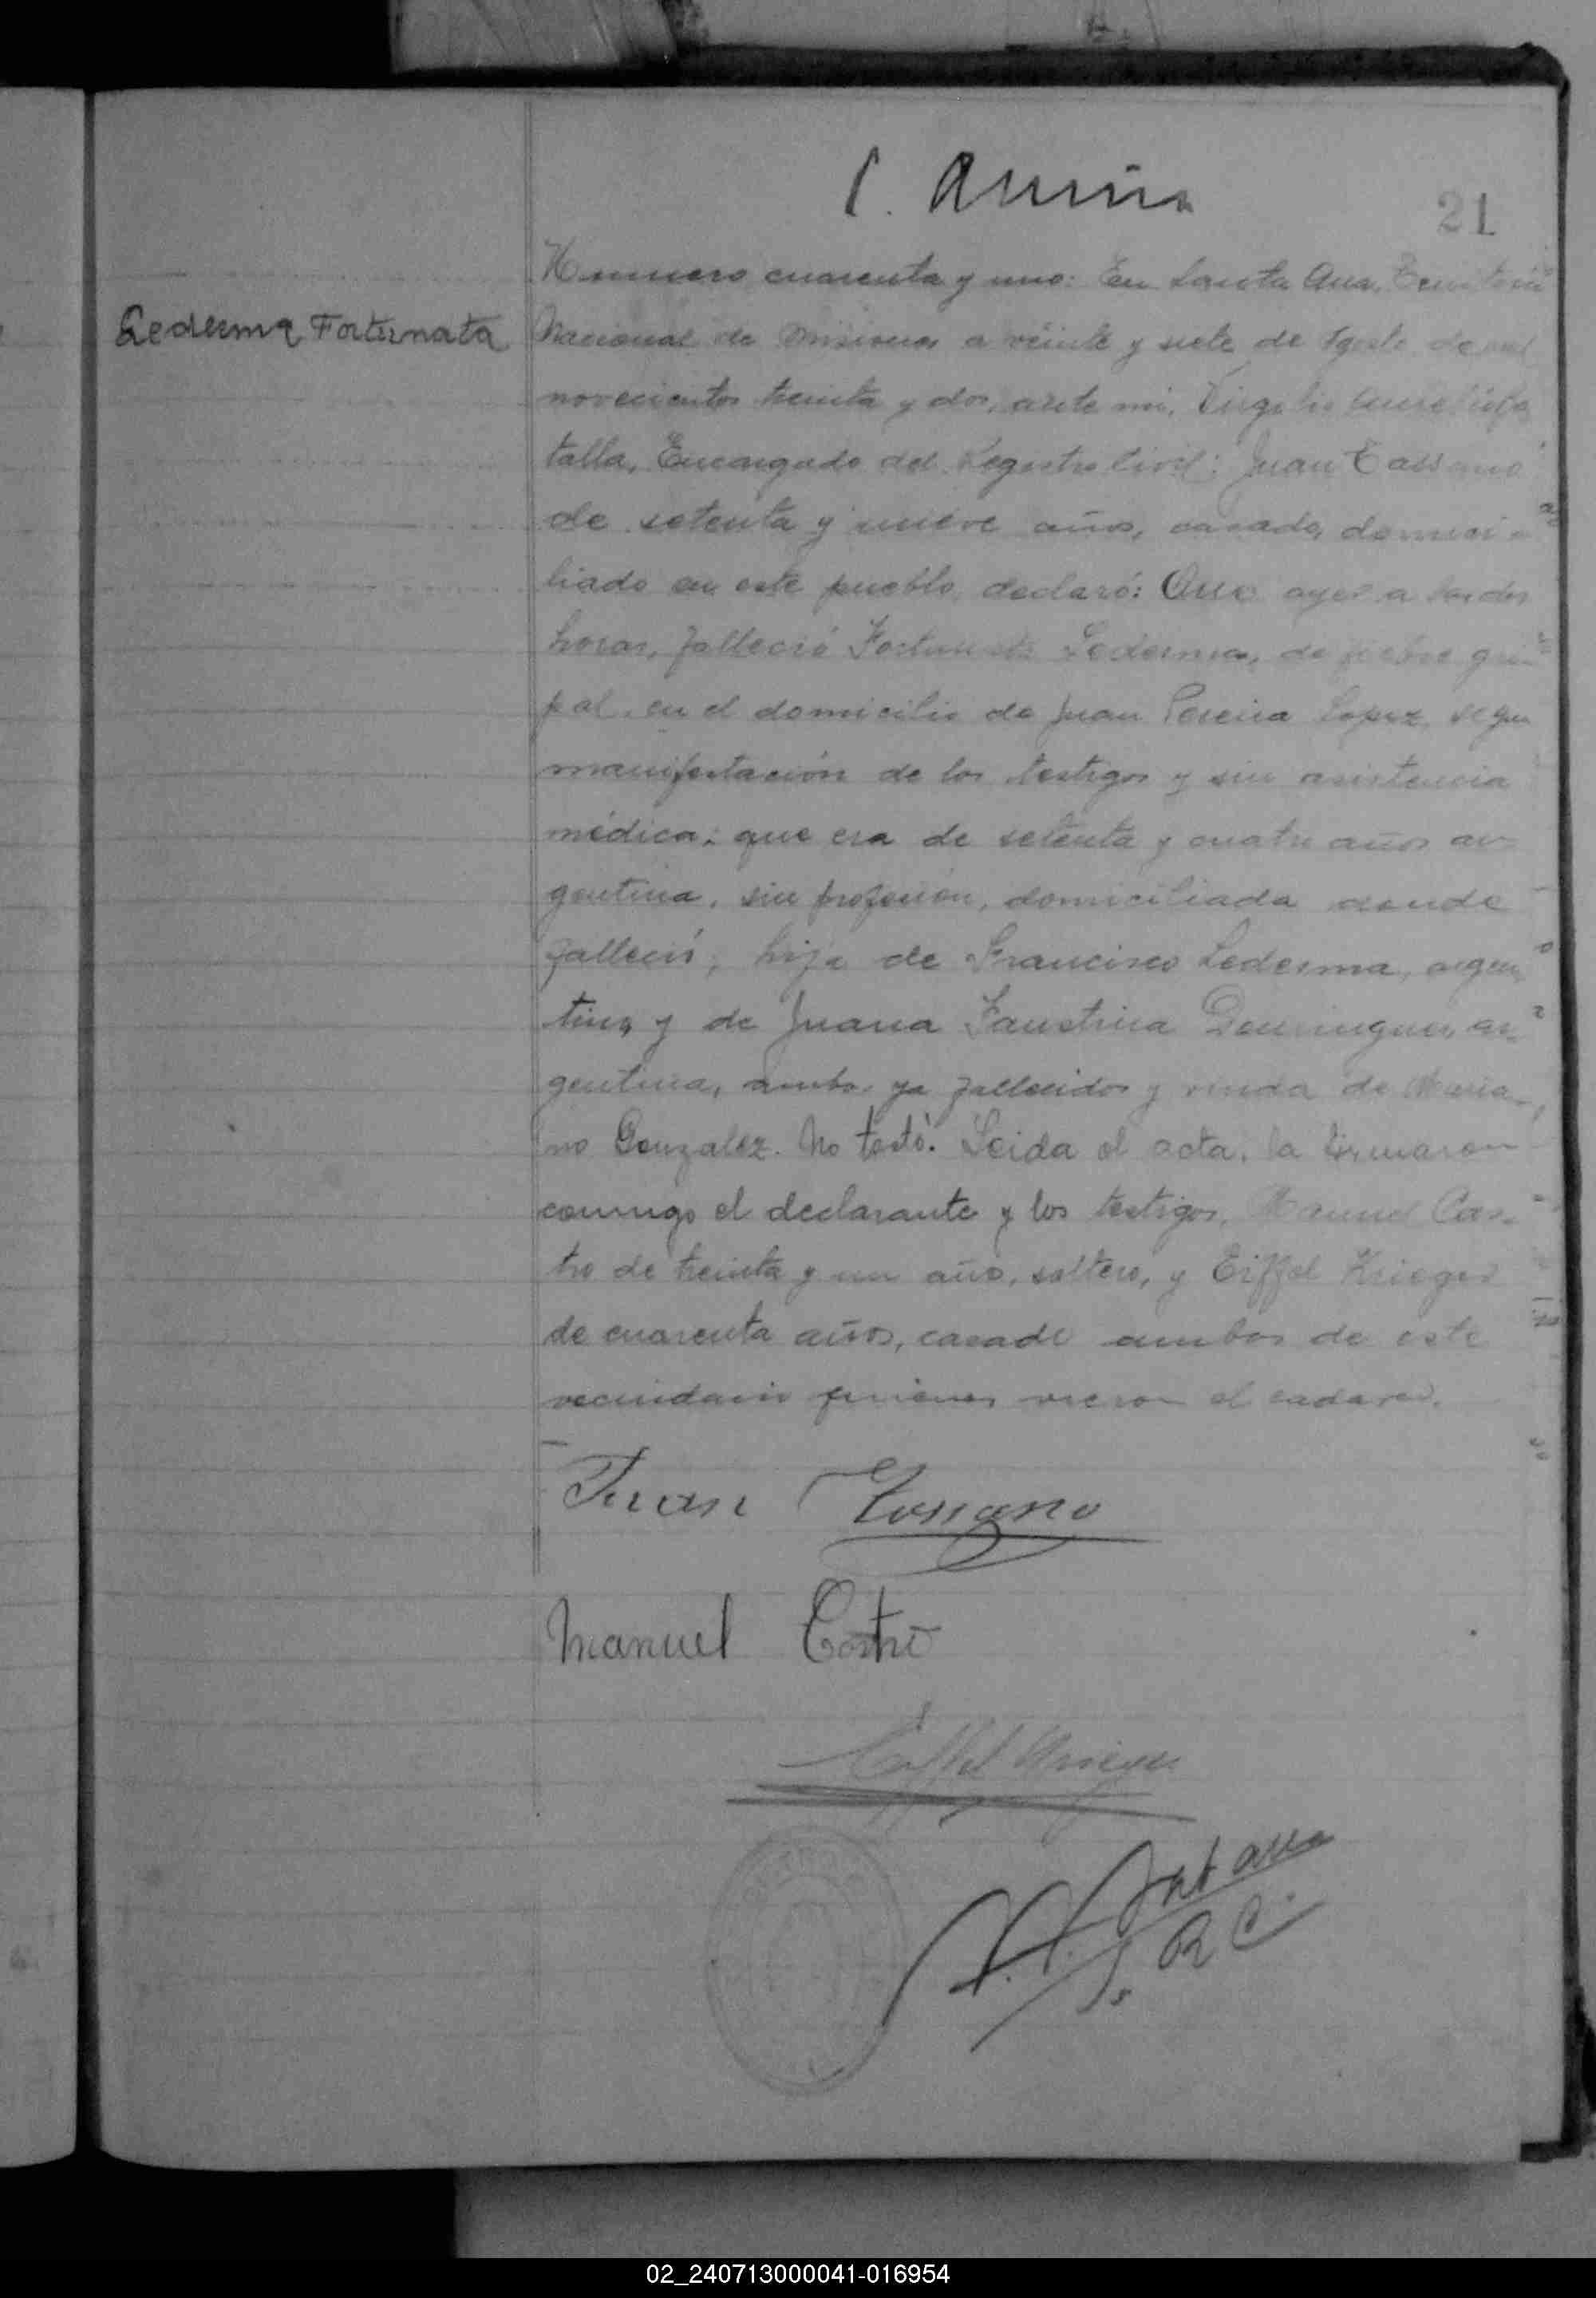 21
Numero cuarenta y uno: En Santa Ana, Territorio
Ledesma Fortunata
Nacional de Misiones a veinte y siete de Agosto de mil
novecientos treinta y dos, ante mi, Virgilio
talla, Encargado del Registro Civil: Juan Tassano
de setenta y nueve años, casado, domici-
liado en este pueblo, declaró: Que ayer a las dos
horas, falleció Fortunata Ledesma, de fiebre gri-
pal, en el domicilio de Juan Pereira Lopez, segun
manifestación de los testigos y sin asistencia
médica; que era de setenta y cuatro años ar-
gentina, sin profesión, domiciliada donde
falleció; hija de Francisco Ledesma, argen-
tino y de Juana Faustina Dominguez, ar-
gentina, ambos ya fallecidos y viuda de Maria-
no Gonzalez. No testó. Leida el acta, la firmaron
conmigo el declarante y los testigos, Manuel Cas-
tro de treinta y un año, soltero, y Eiffel Krieger
de cuarenta años, casado ambos de este
vecindario quienes vieron el cadaver.
Juan Tossano
Manuel Castro
Eiffel Krieger
R C
02_240713000041-016954